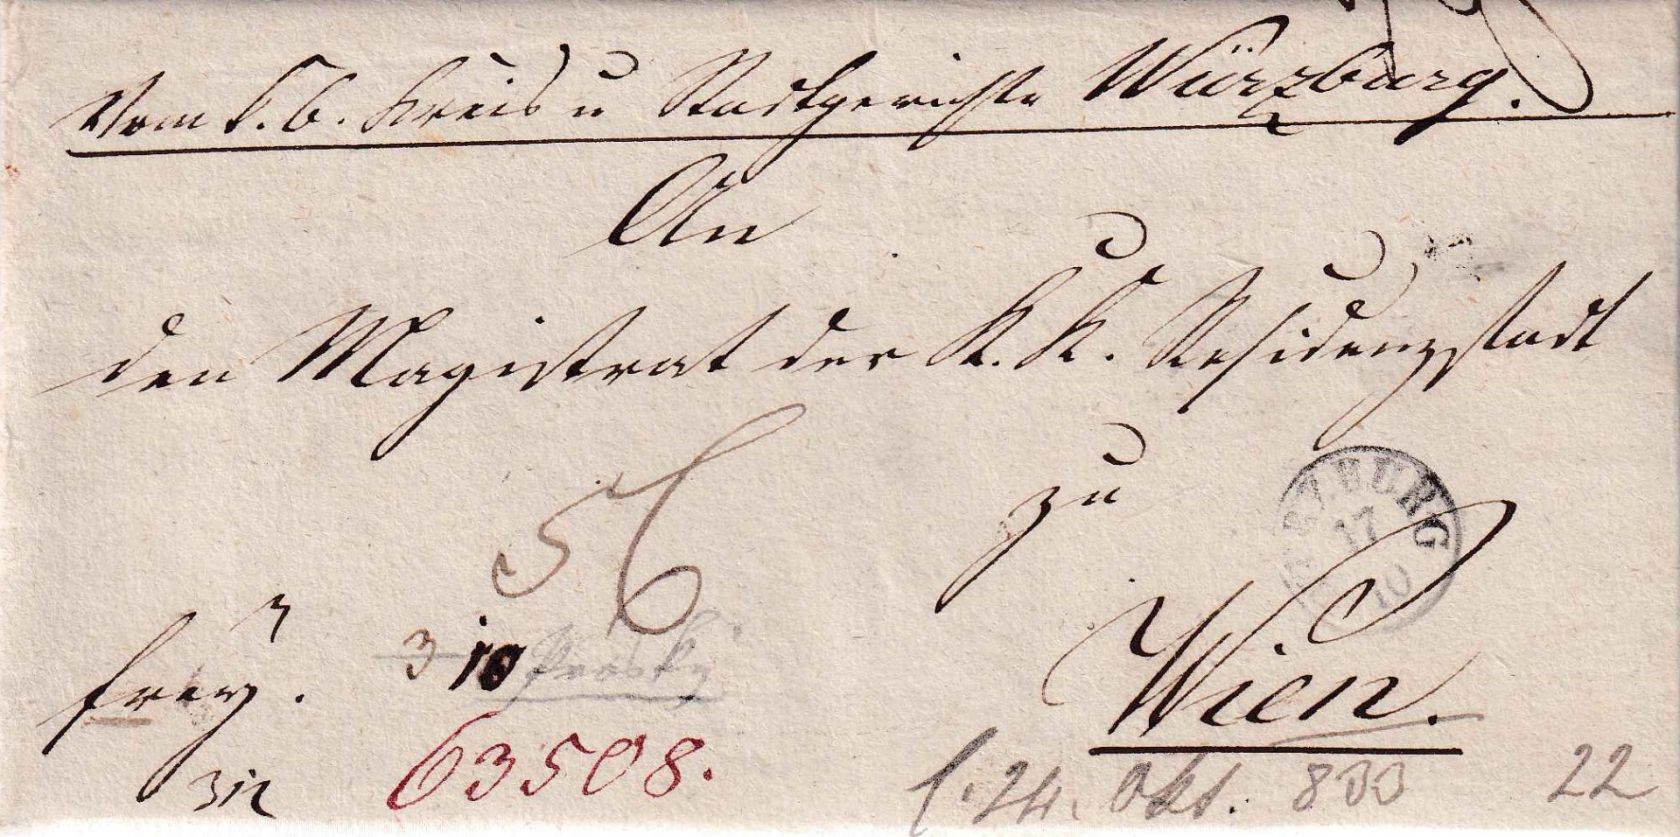 Vom k. b. Kreis u Stadtgerichte Würzburg.
An
den Magistrat der K. K. Residenzstadt
zu
Wien.
WÜRZBURG
17
10
56
frey.
3 10
312
63508.
24. Okt. 833
22